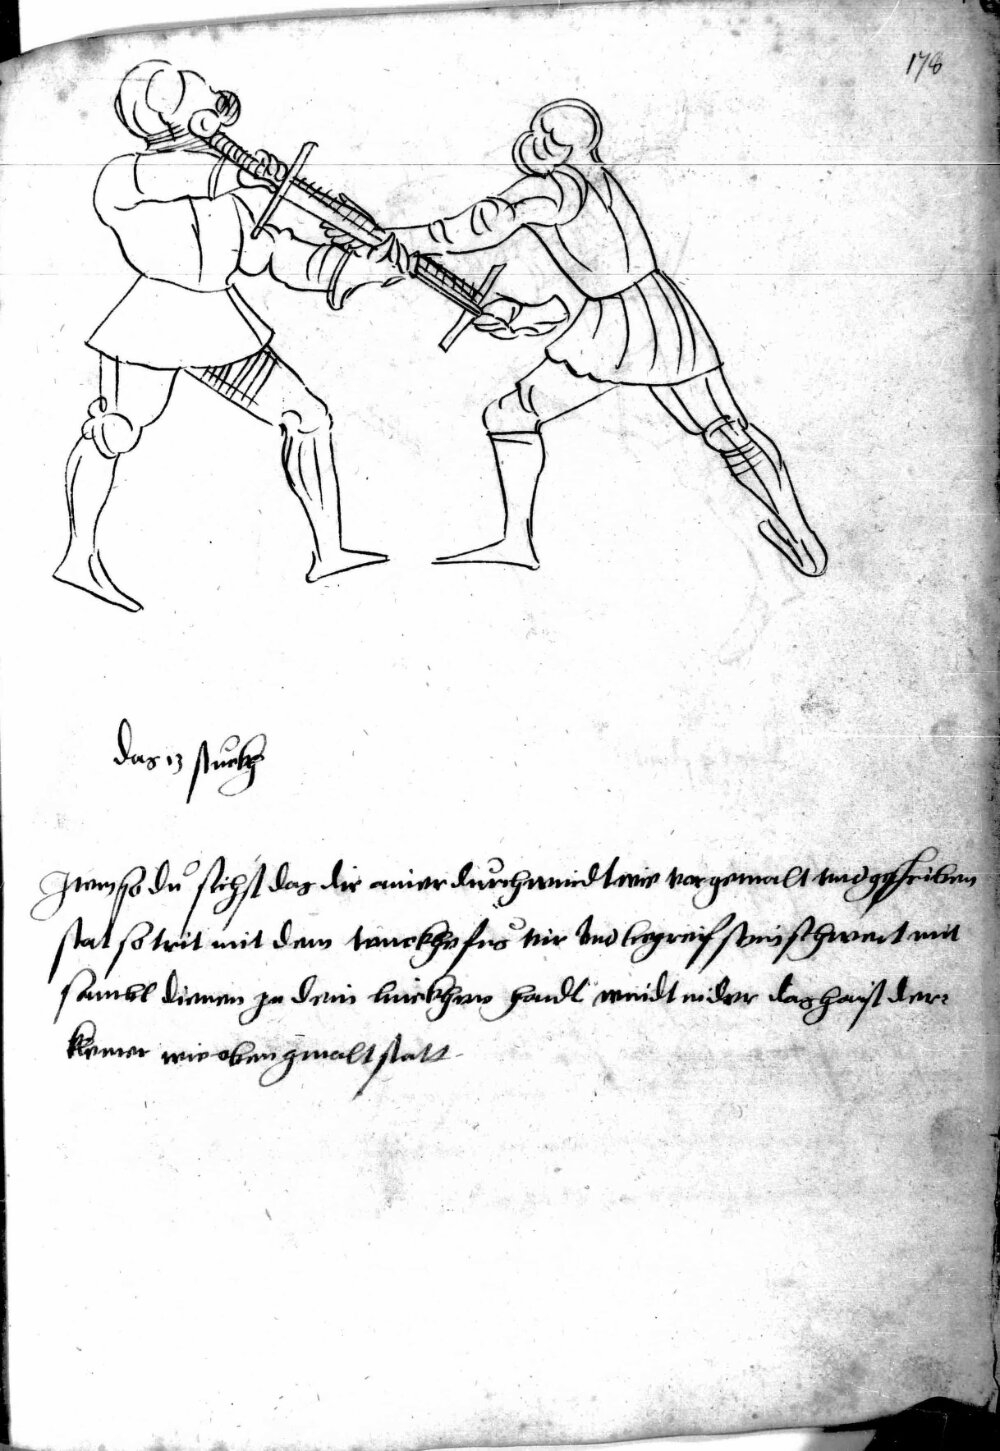 178
das 13 stuckh
Item so du sichst das dir ainer durch windt wie vor gemalt vnd geschriben
stat so trit mit dem fus fur vnd begreif sein schwert mit
sambt deinen in dein linckhen handt windt nider das haist der
klemer wie oben gmalt statt